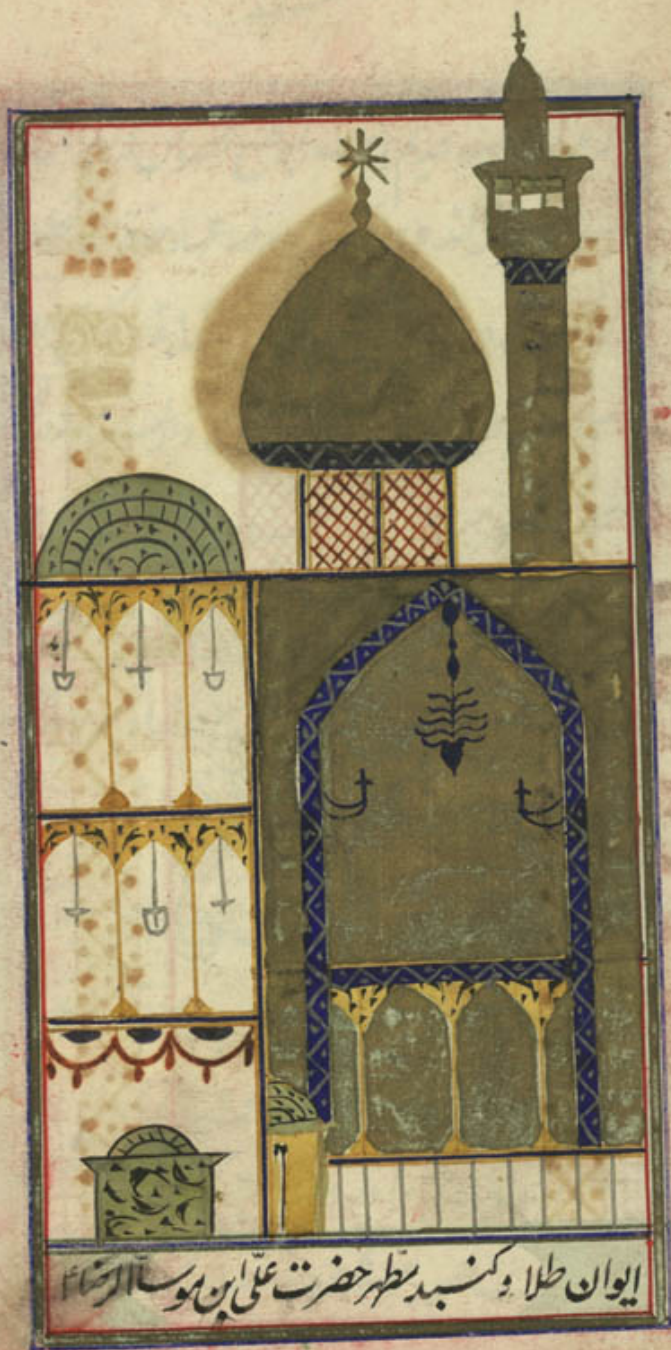 ایوان طلا و کنبد مطهر حضرت علی ابن موسا الرضا ع